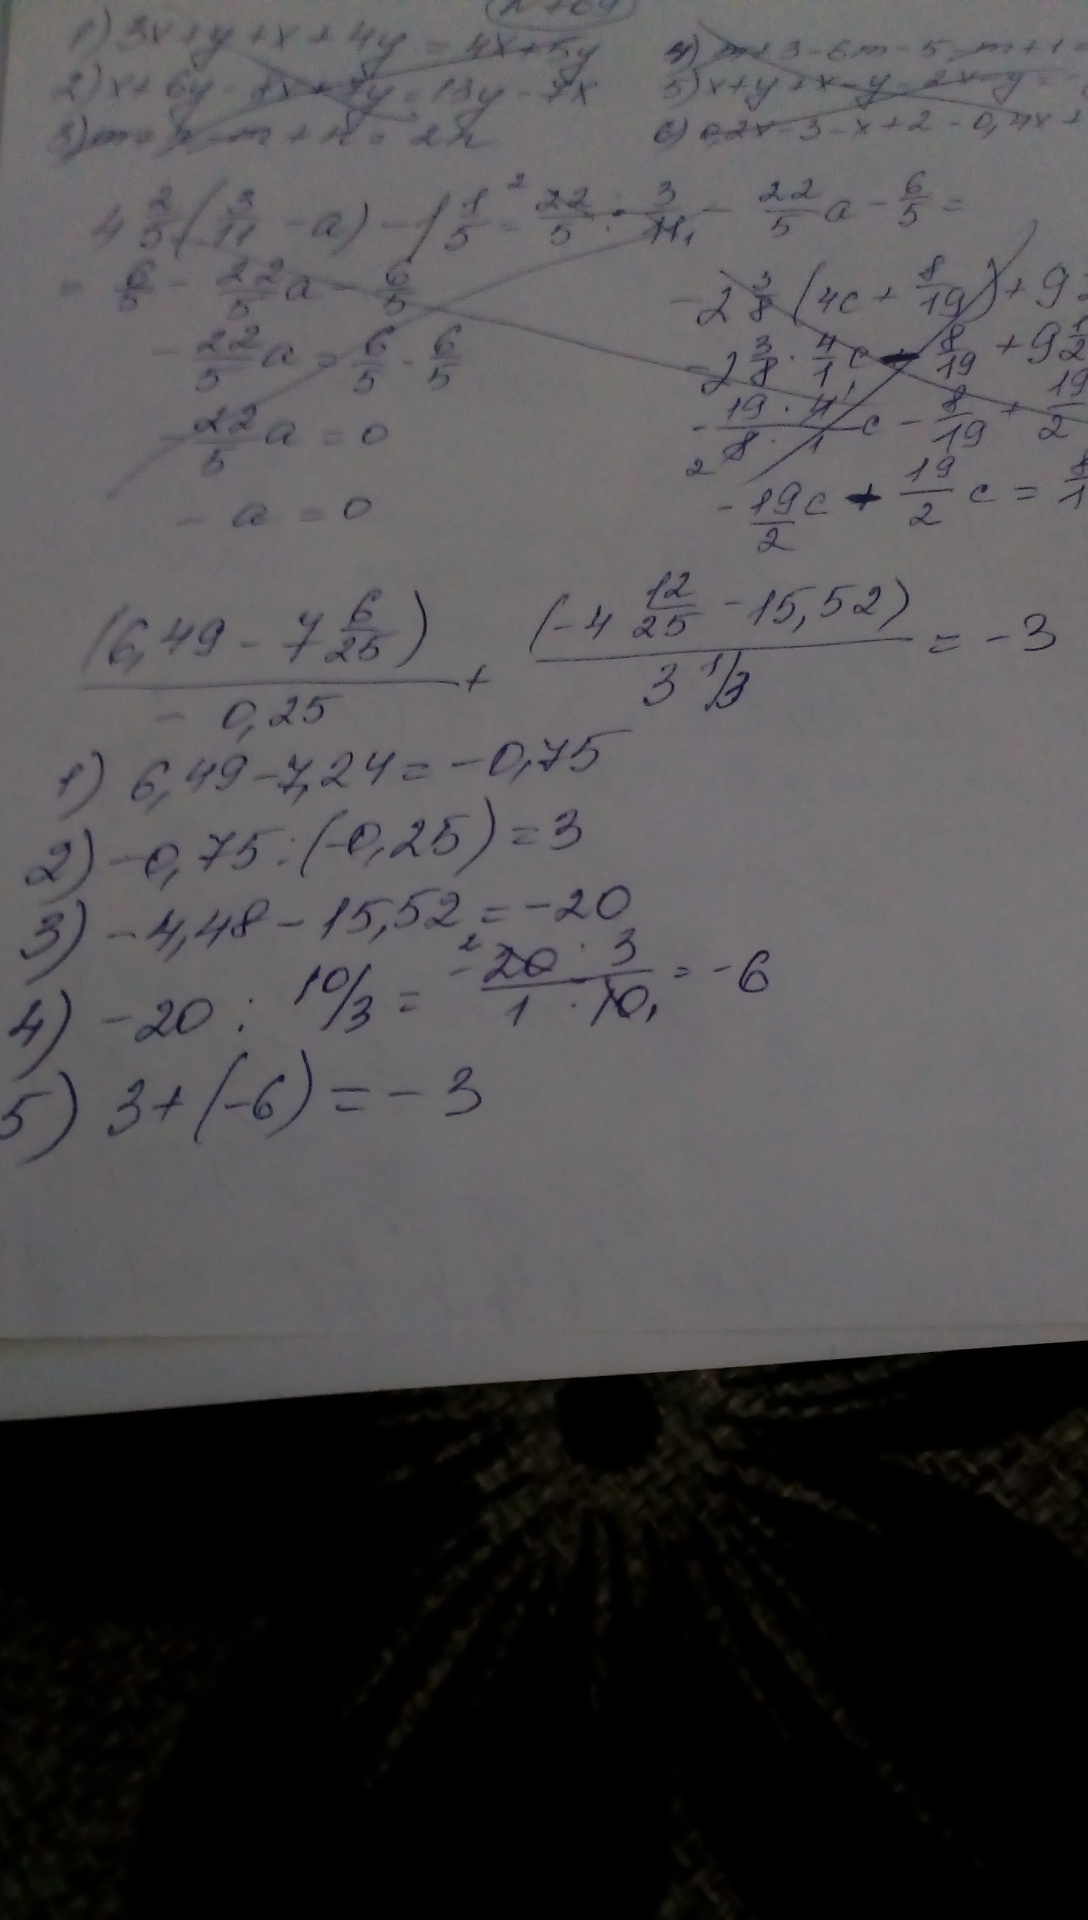 1) 3x+y+x+4y=4x+5y
2) x+6y-8x+7y=13y-7x
3) m+n-m+n=2n
4) m+3-6m-5-m+1=
5) x+y+x-y-2x-y=-
6) 0,2x-3-x+2-0,4x+
4 2/5 (3/11 - a) - 1 1/5 = 22/5 · 3/11 - 22/5 a - 6/5 =
= 6/5 - 22/5 a - 6/5
- 22/5 a = 6/5 - 6/5
- 22/5 a = 0
- a = 0
-2 3/8 (4c + 8/19) + 9
-2 3/8 · 4/1 c - 8/19 + 9 1/2
- 19·4/8·1 c - 8/19 + 19/2
- 19/2 c + 19/2 c = 8/1
(6,49 - 7 6/25)/-0,25 + (-4 12/25 - 15,52)/3 1/3 = -3
1) 6,49-7,24=-0,75
2) -0,75:(-0,25)=3
3) -4,48-15,52=-20
4) -20 : 10/3 = -20·3/1·10 = -6
5) 3+(-6)=-3